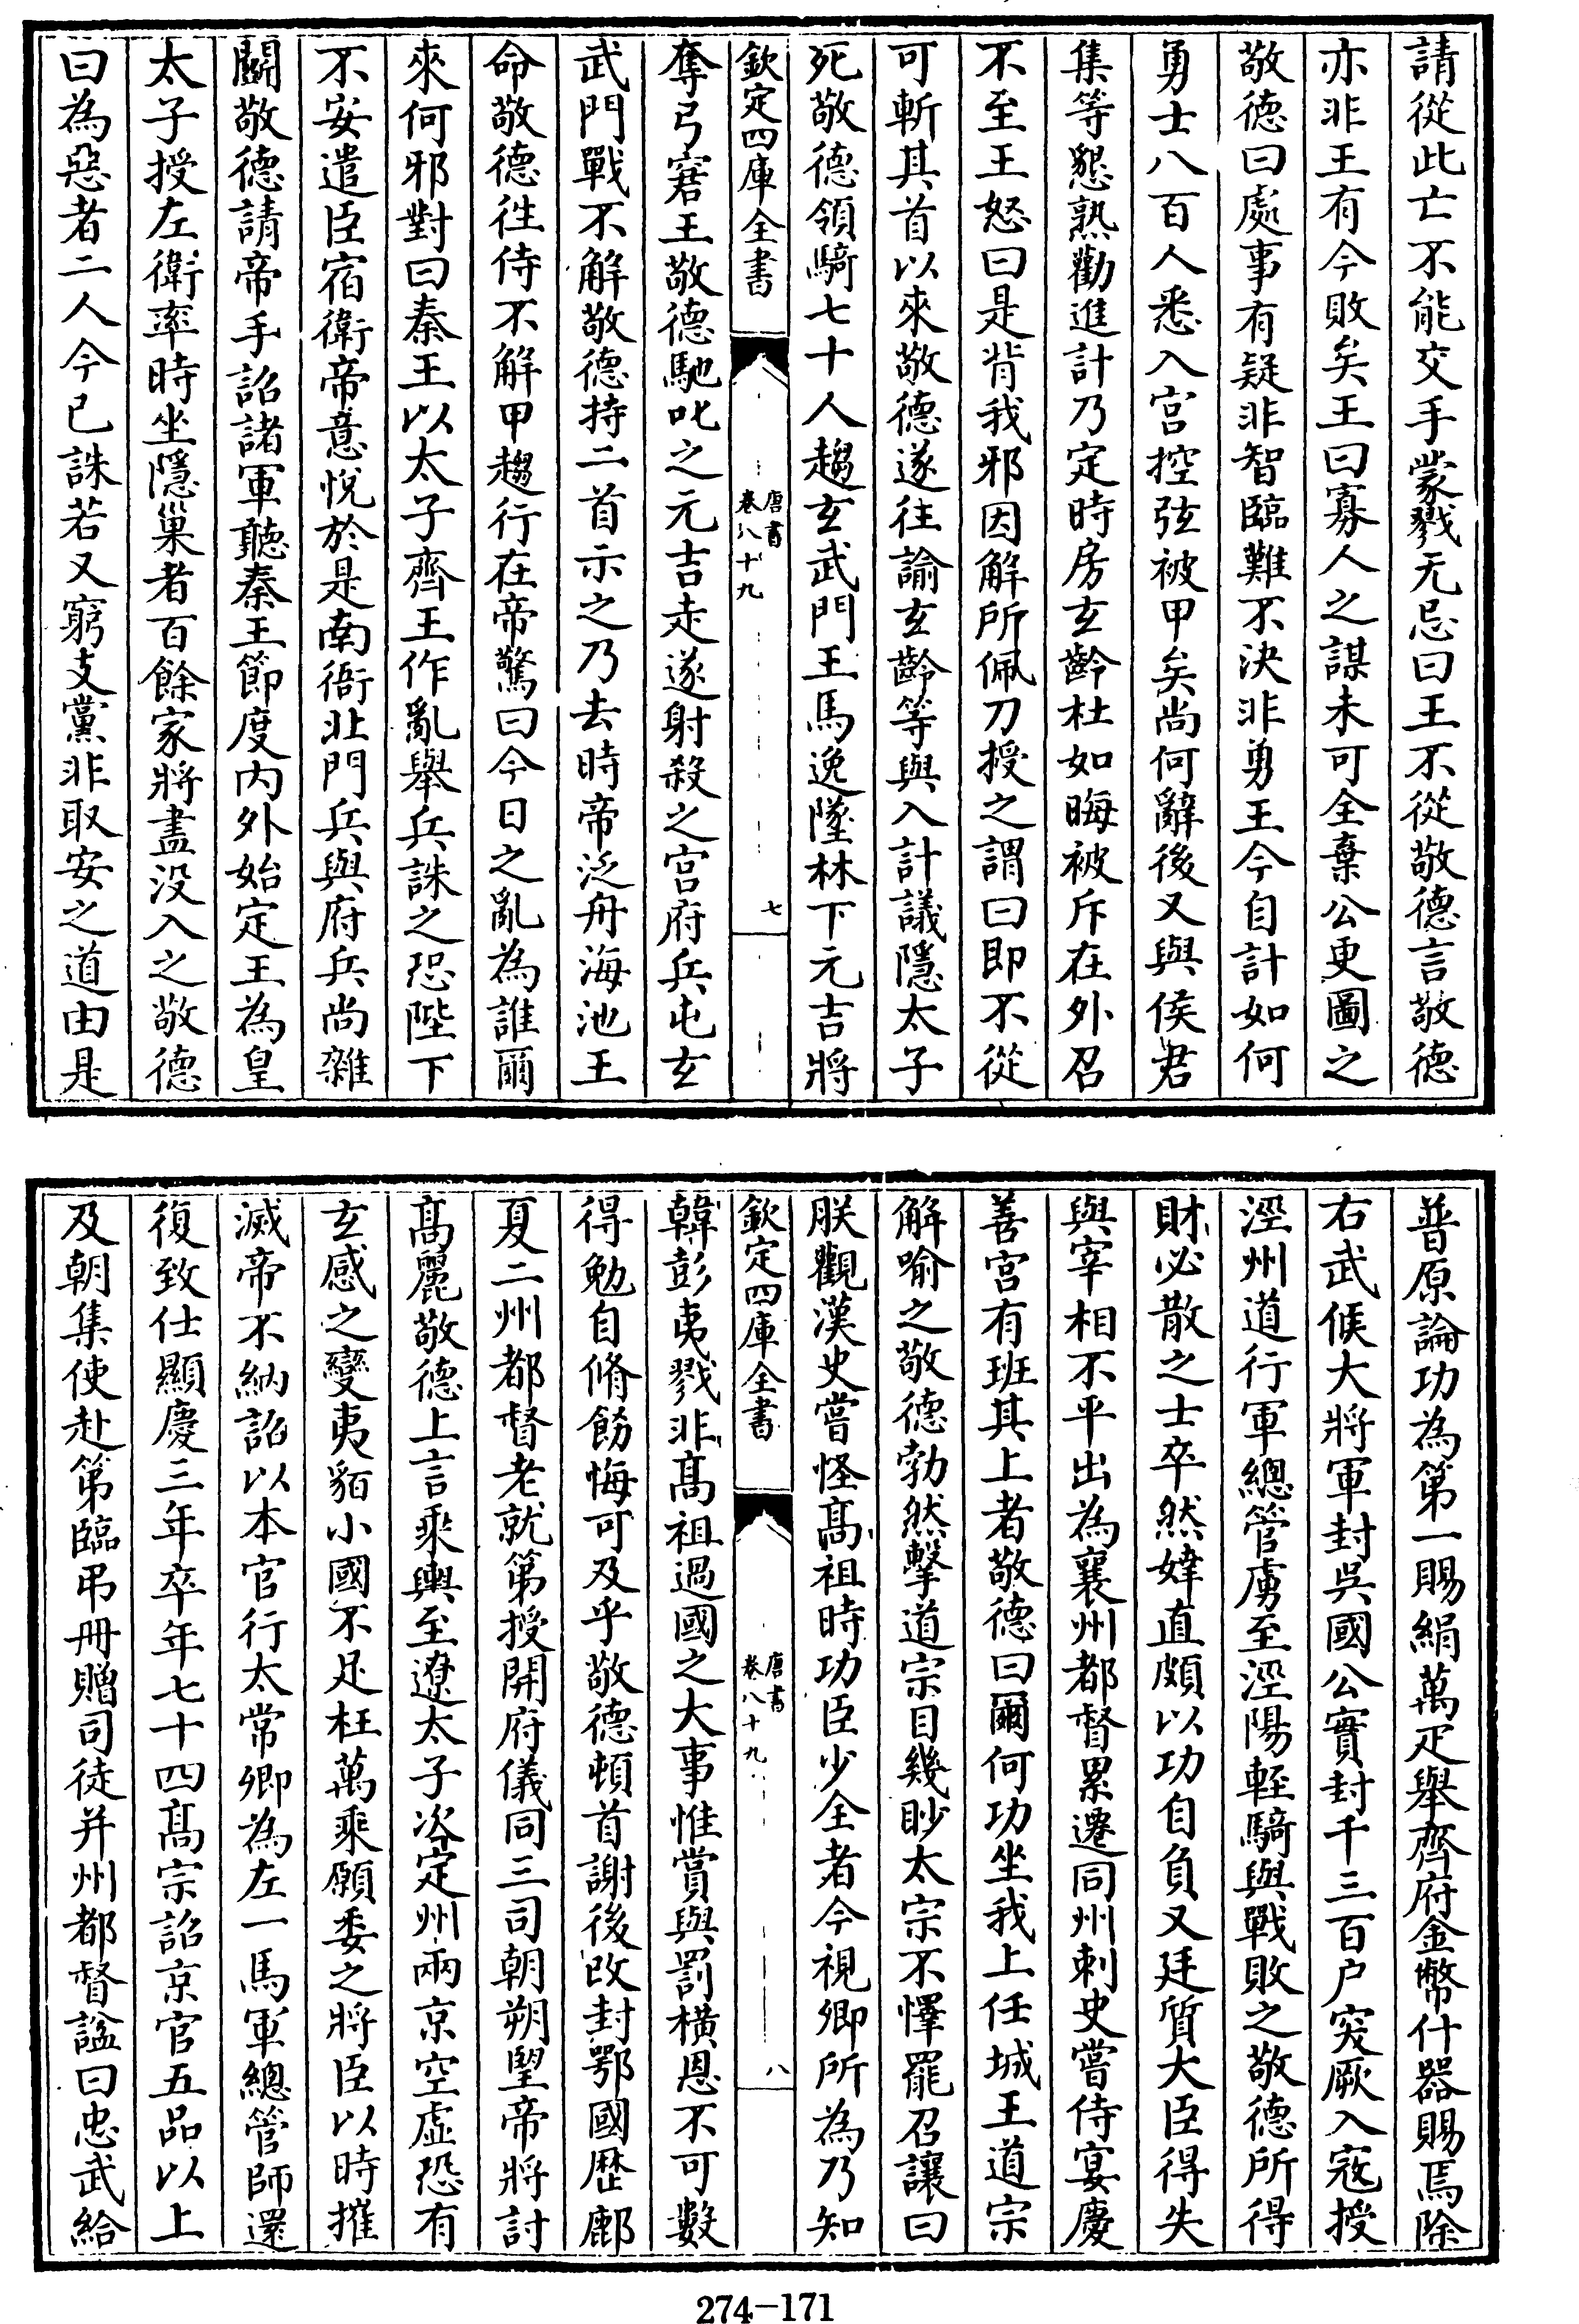 請從此亡不能交手蒙戮无忌曰王不從敬德言敬德
亦非王有今敗矣王曰寡人之謀未可全棄公更圖之
敬德曰處事有疑非智臨難不決非勇王今自計如何
勇士八百人悉入宫控弦被甲矣尚何辭後又與侯君
集等懇熟勸進計乃定時房玄齡杜如晦被斥在外召
不至王怒曰是背我邪因解所佩刀授之謂曰即不從
可斬其首以來敬德遂往諭玄齡等與入計議隱太子
死敬德領騎七十人趨玄武門王馬逸墜林下元吉將
欽定四庫全書
唐書
卷八十九
七
奪弓窘王敬德馳叱之元吉走遂射殺之宫府兵屯玄
武門戰不解敬德持二首示之乃去時帝泛舟海池王
命敬德徃侍不解甲趨行在帝驚曰今日之亂為誰爾
來何邪對曰秦王以太子齊王作亂舉兵誅之恐陛下
不安遣臣宿衛帝意悅於是南衙北門兵與府兵尚雜
鬭敬德請帝手詔諸軍聽秦王節度内外始定王為皇
太子授左衛率時坐隱巢者百餘家將盡没入之敬德
曰為惡者二人今已誅若又窮支黨非取安之道由是
普原論功為第一賜絹萬疋舉齊府金幣什器賜焉除
右武候大將軍封吳國公實封千三百户突厥入寇授
涇州道行軍總管虜至涇陽輕騎與戰敗之敬德所得
財必散之士卒然婞直頗以功自負又廷質大臣得失
與宰相不平出為襄州都督累遷同州刺史嘗侍宴慶
善宫有班其上者敬德曰爾何功坐我上任城王道宗
解喻之敬德勃然擊道宗目幾眇太宗不懌罷召讓曰
朕觀漢史嘗怪髙祖時功臣少全者今視卿所為乃知
欽定四庫全書
唐書
卷八十九
八
韓彭夷戮非髙祖過國之大事惟賞與罰横恩不可數
得勉自脩飭悔可及乎敬德頓首謝後改封鄂國歴鄜
夏二州都督老就第授開府儀同三司朝朔朢帝將討
髙麗敬德上言乘輿至遼太子次定州兩京空虛恐有
玄感之變夷貊小國不足枉萬乘願委之將臣以時摧
滅帝不納詔以本官行太常卿為左一馬軍總管師還
復致仕顯慶三年卒年七十四髙宗詔京官五品以上
及朝集使赴第臨弔冊贈司徒并州都督謚曰忠武給
274-171